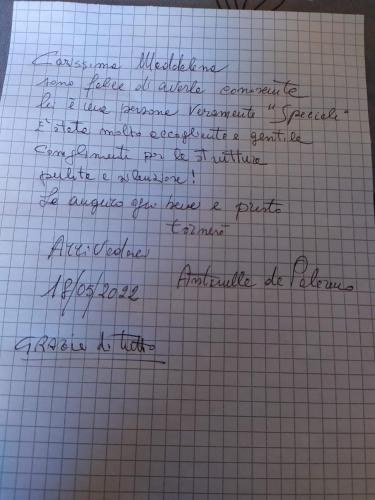 Carissima Maddalena
sono felice di averla conosciuta
lei è una persona veramente "Speciale"
E' stata molto accogliente e gentile
Complimenti per la struttura
pulita e silenziosa!
Le auguro ogni bene e presto
tornerò
Arrivederci
18/05/2022 de Palermo
GRAZIE di tutto